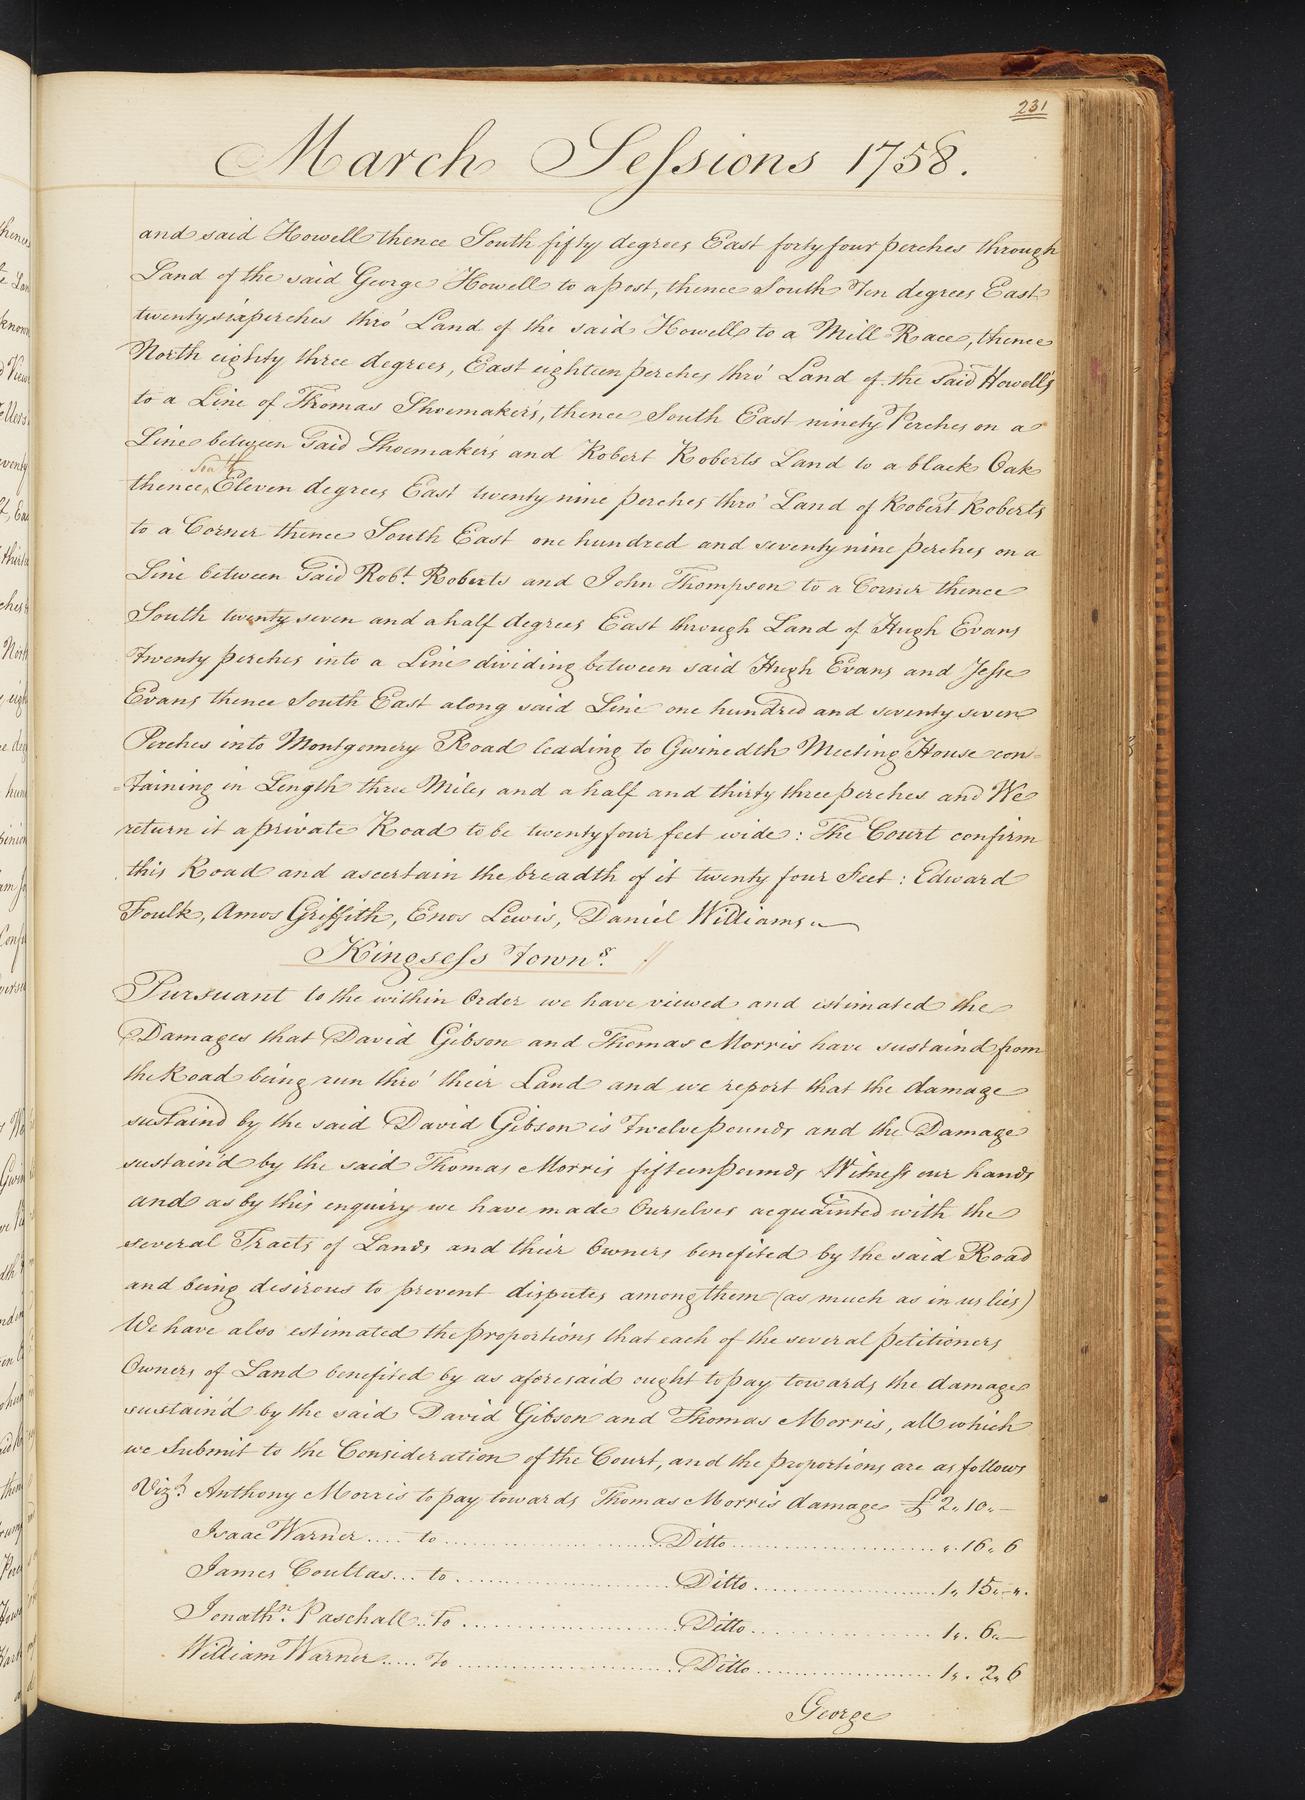 231
March Sessions 1758.
and said Howell thence South fifty degrees East forty four perches through
Land of the said George Howell to a post, thence South Ten degrees East
twenty six perches thro' Land of the said Howell to a Mill Race, thence
North eighty three degrees, East eighteen perches thro' Land of the said Howell's
to a Line of Thomas Shoemaker's, thence South East ninety Perches on a
Line between said Shoemaker's and Robert Roberts Land to a black Oak
South
thence Eleven degrees East twenty nine perches thro' Land of Robert Roberts
to a Corner thence South East one hundred and seventy nine perches on a
Line between said Robt. Roberts and John Thompson to a Corner thence
South twenty seven and a half degrees East through Land of Hugh Evans
Twenty perches into a Line dividing between said Hugh Evans and Jesse
Evans thence South East along said Line one hundred and seventy seven
Perches into Montgomery Road leading to Gwinedth Meeting House con-
=taining in Length three Miles and a half and thirty three perches and We
return it a private Road to be twenty four feet wide: The Court confirm
this Road and ascertain the breadth of it twenty four Feet: Edward
Foulk, Amos Griffith, Enos Lewis, Daniel Williams
Kingsess Towns. //
Pursuant to the within Order we have viewed and estimated the
Damages that David Gibson and Thomas Morris have sustaind from
the Road being run thro' their Land and we report that the damage
sustaind by the said David Gibson is Twelve pounds and the Damage
sustain'd by the said Thomas Morris fifteen pounds Witness our hands
and as by this enquiry we have made Ourselves acquainted with the
several Tracts of Lands and their Owners benefited by the said Road
and being desirous to prevent disputes among them (as much as in us lies)
We have also estimated the proportions that each of the several petitioners
Owners of Land benefited by as aforesaid ought to pay towards the damages
sustain'd by the said David Gibson and Thomas Morris, all which
we Submit to the Consideration of the Court, and the proportions are as follows
Vizt. Anthony Morris to pay towards Thomas Morris damage £ 2.. 10.. —
Isaac Warner .... to .... Ditto .... .. 16.. 6
James Coultas... to .... Ditto .... 1.. 15.. —..
Jonathn. Paschall.. To .... Ditto .... 1.. 6.. —
William Warner .... To .... Ditto .... 1.. 2.. 6
George